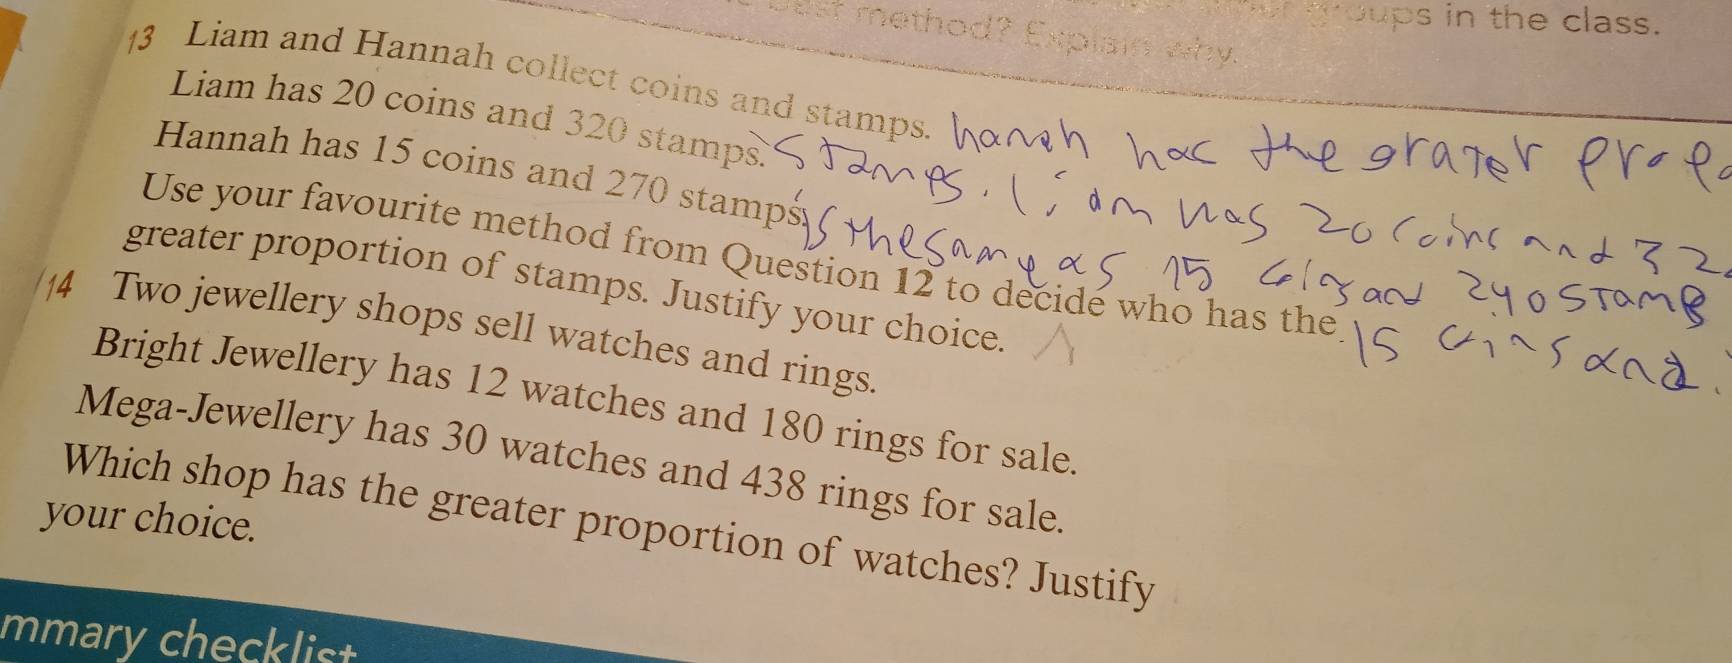 groups in the class.
best method? Explain why.
13 Liam and Hannah collect coins and stamps.
Liam has 20 coins and 320 stamps.
Hannah has 15 coins and 270 stamps.
Use your favourite method from Question 12 to decide who has the
greater proportion of stamps. Justify your choice.
hanah has the grater
stamps. liam has 20 coins and 32
is the same as 15 coins and 240 stamps
15 coins and
14 Two jewellery shops sell watches and rings.
Bright Jewellery has 12 watches and 180 rings for sale.
Mega-Jewellery has 30 watches and 438 rings for sale.
Which shop has the greater proportion of watches? Justify
your choice.
mmary checklist